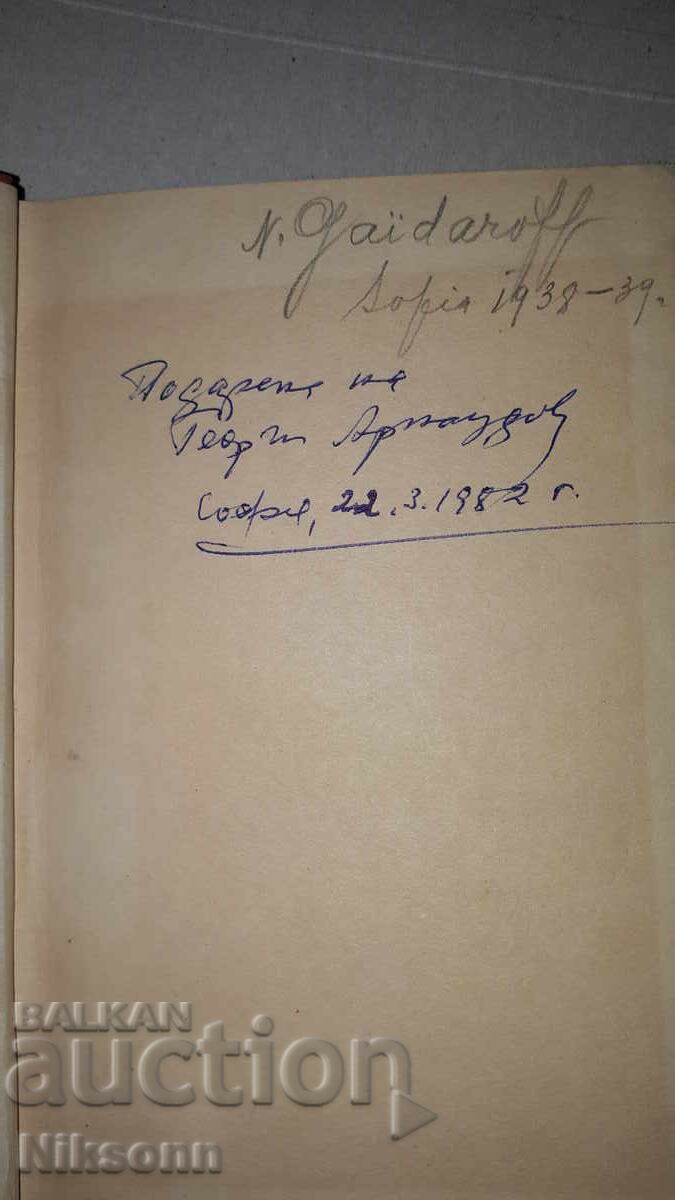 N. Gaïdaroff
Sofia 1938-39.
Подарена на
Георги Арнаудов
София, 22.3.1982 г.
BALKAN
auction
Niksonn